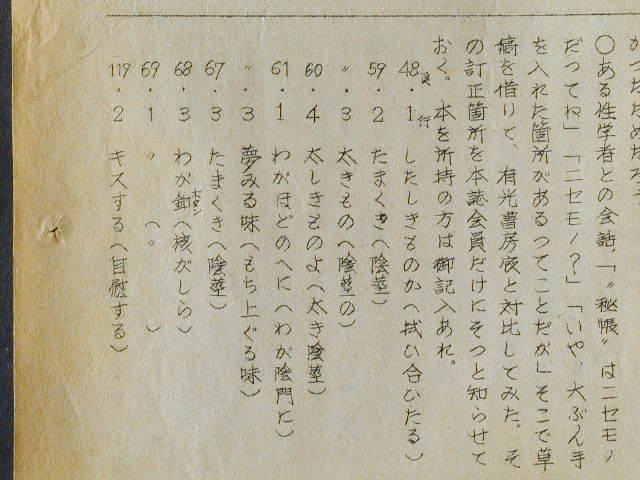 かつたためだろう
〇ある性学者との会話。「〝秘帳〟はニセモノ
だつてね」「ニセモノ?」「いや、大ぶん手
を入れた箇所があるつてことだが」そこで草
稿を借りて、有光書房版と対比してみた。そ
の訂正箇所を本誌会員だけにそつと知らせて
おく。本を所持の方は御記入あれ。
48頁・1行 したしきものか(拭ひ合ひたる)
59・2 たまくき(陰莖)
〃・3 太きもの(陰莖の)
60・4 太しきものよ(太き陰莖)
61・1 わがほどのへに(わが陰門に)
〃・3 夢みる味(もち上ぐる味)
67・3 たまくき(陰莖)
68・3 わが釦ボタン(核がしら)
69・1 〃 (〃 )
119・2 キスする(自慰する)